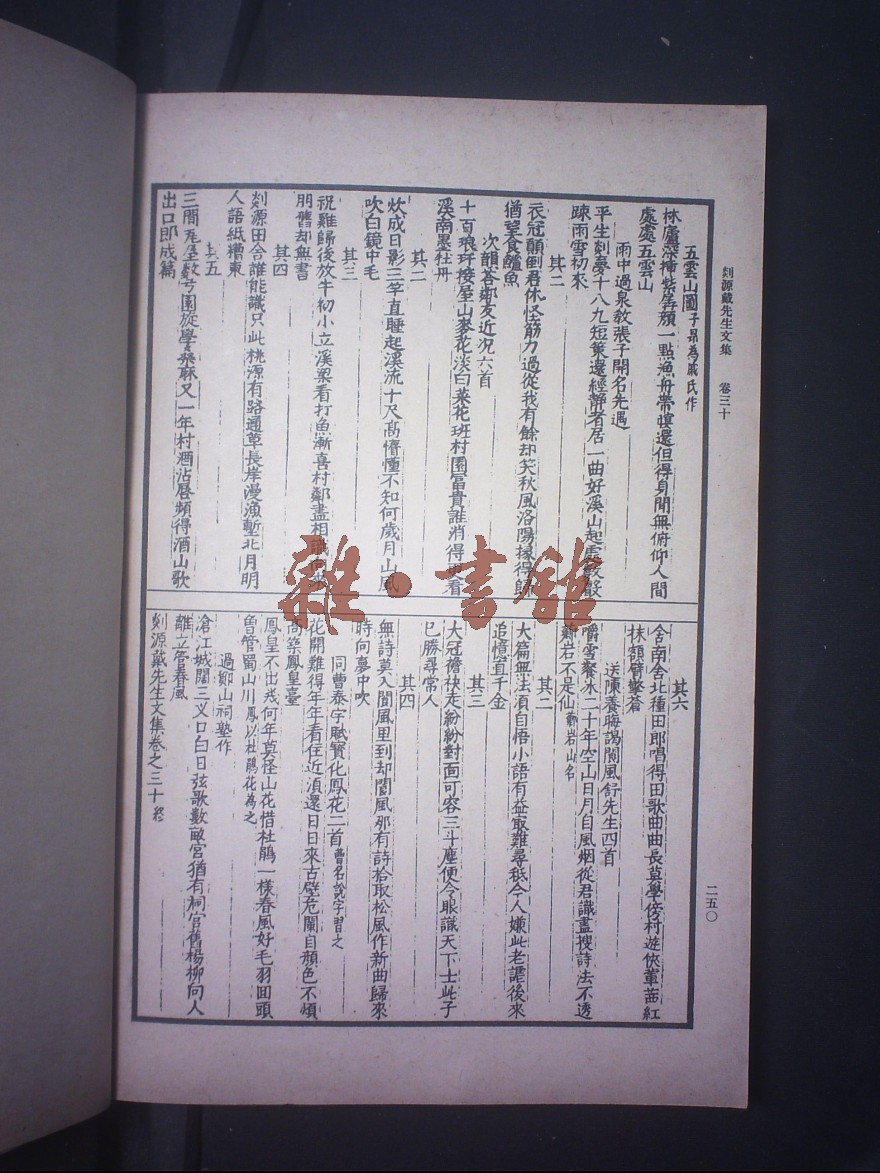 剡源戴先生文集 卷三十
五雲山圖子昂為戚氏作
林廬深擁紫孱顏一點漁舟帶暝還但得身閒無俯仰人間
處處五雲山
雨中過泉教張子開名先遇
平生剡夢十八九短策還經靜者居一曲好溪山起處數殽
疎雨雪初來
其二
衣冠顛倒君休怪筋力過從我有餘却笑秋風洛陽掾得歸
猶望食鱸魚
次韻荅鄰友近況六首
十百琅玕接屋山麥花淡白菜花班村園富貴誰消得更看
溪南墨牡丹
其二
炊成日影三竿直睡起溪流十尺高懵懂不知何歲月山風
吹白鏡中毛
其三
祝雞歸後放牛初小立溪梁看打魚漸喜村鄰盡相識
朋舊却無書
其四
剡源田舍誰能識只此桃源有路通草長岸漫漁塹北月明
人語紙槽東
其五
三間瓦屋數弓園旋學桑麻又一年村酒沾唇頻得酒山歌
出口即成篇
其六
舍南舍北種田郎唱得田歌曲曲長莫學傍村遊俠輩茜紅
抹額臂擎蒼
送陳養晦謁閬風舒先生四首
嚼雪餐冰二十年空山日月自風烟從君識盡搜詩法不透
嶄岩不是仙嶄岩山名
其二
大篇無法須自悟小語有益最難尋秪今人嫌此老謔後來
追憶直千金
其三
大冠襜袂走紛紛對面可容三斗塵便令眼識天下士此子
已勝尋常人
其四
無詩莫入閬風里到却閬風那有詩拾取松風作新曲歸來
時向夢中吹
同曹泰字賦寳化鳳花二首曹名說字習之
花開難得年年看住近須還日日來古壁危闌自顏色不煩
高築鳳皇臺
鳳皇不出幾何年莫怪山花惜杜鵑一樣春風好毛羽回頭
曾管蜀山川鳳以杜鵑花為之
過鄮山祠塾作
滄江城闊三义口白日弦歌數畝宮猶有祠官舊楊柳向人
離立管春風
剡源戴先生文集卷之三十終
二五〇
雜·書館